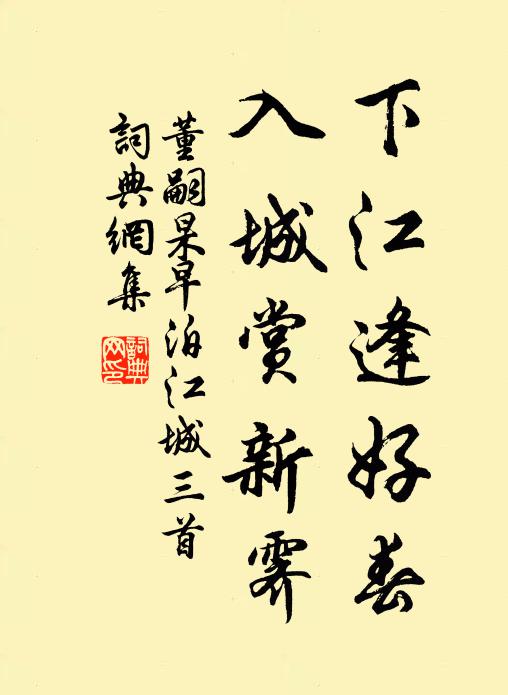 下江逢好春
入城賞新霽
董嗣杲早泊江城三首
詞典網集
詞典網印